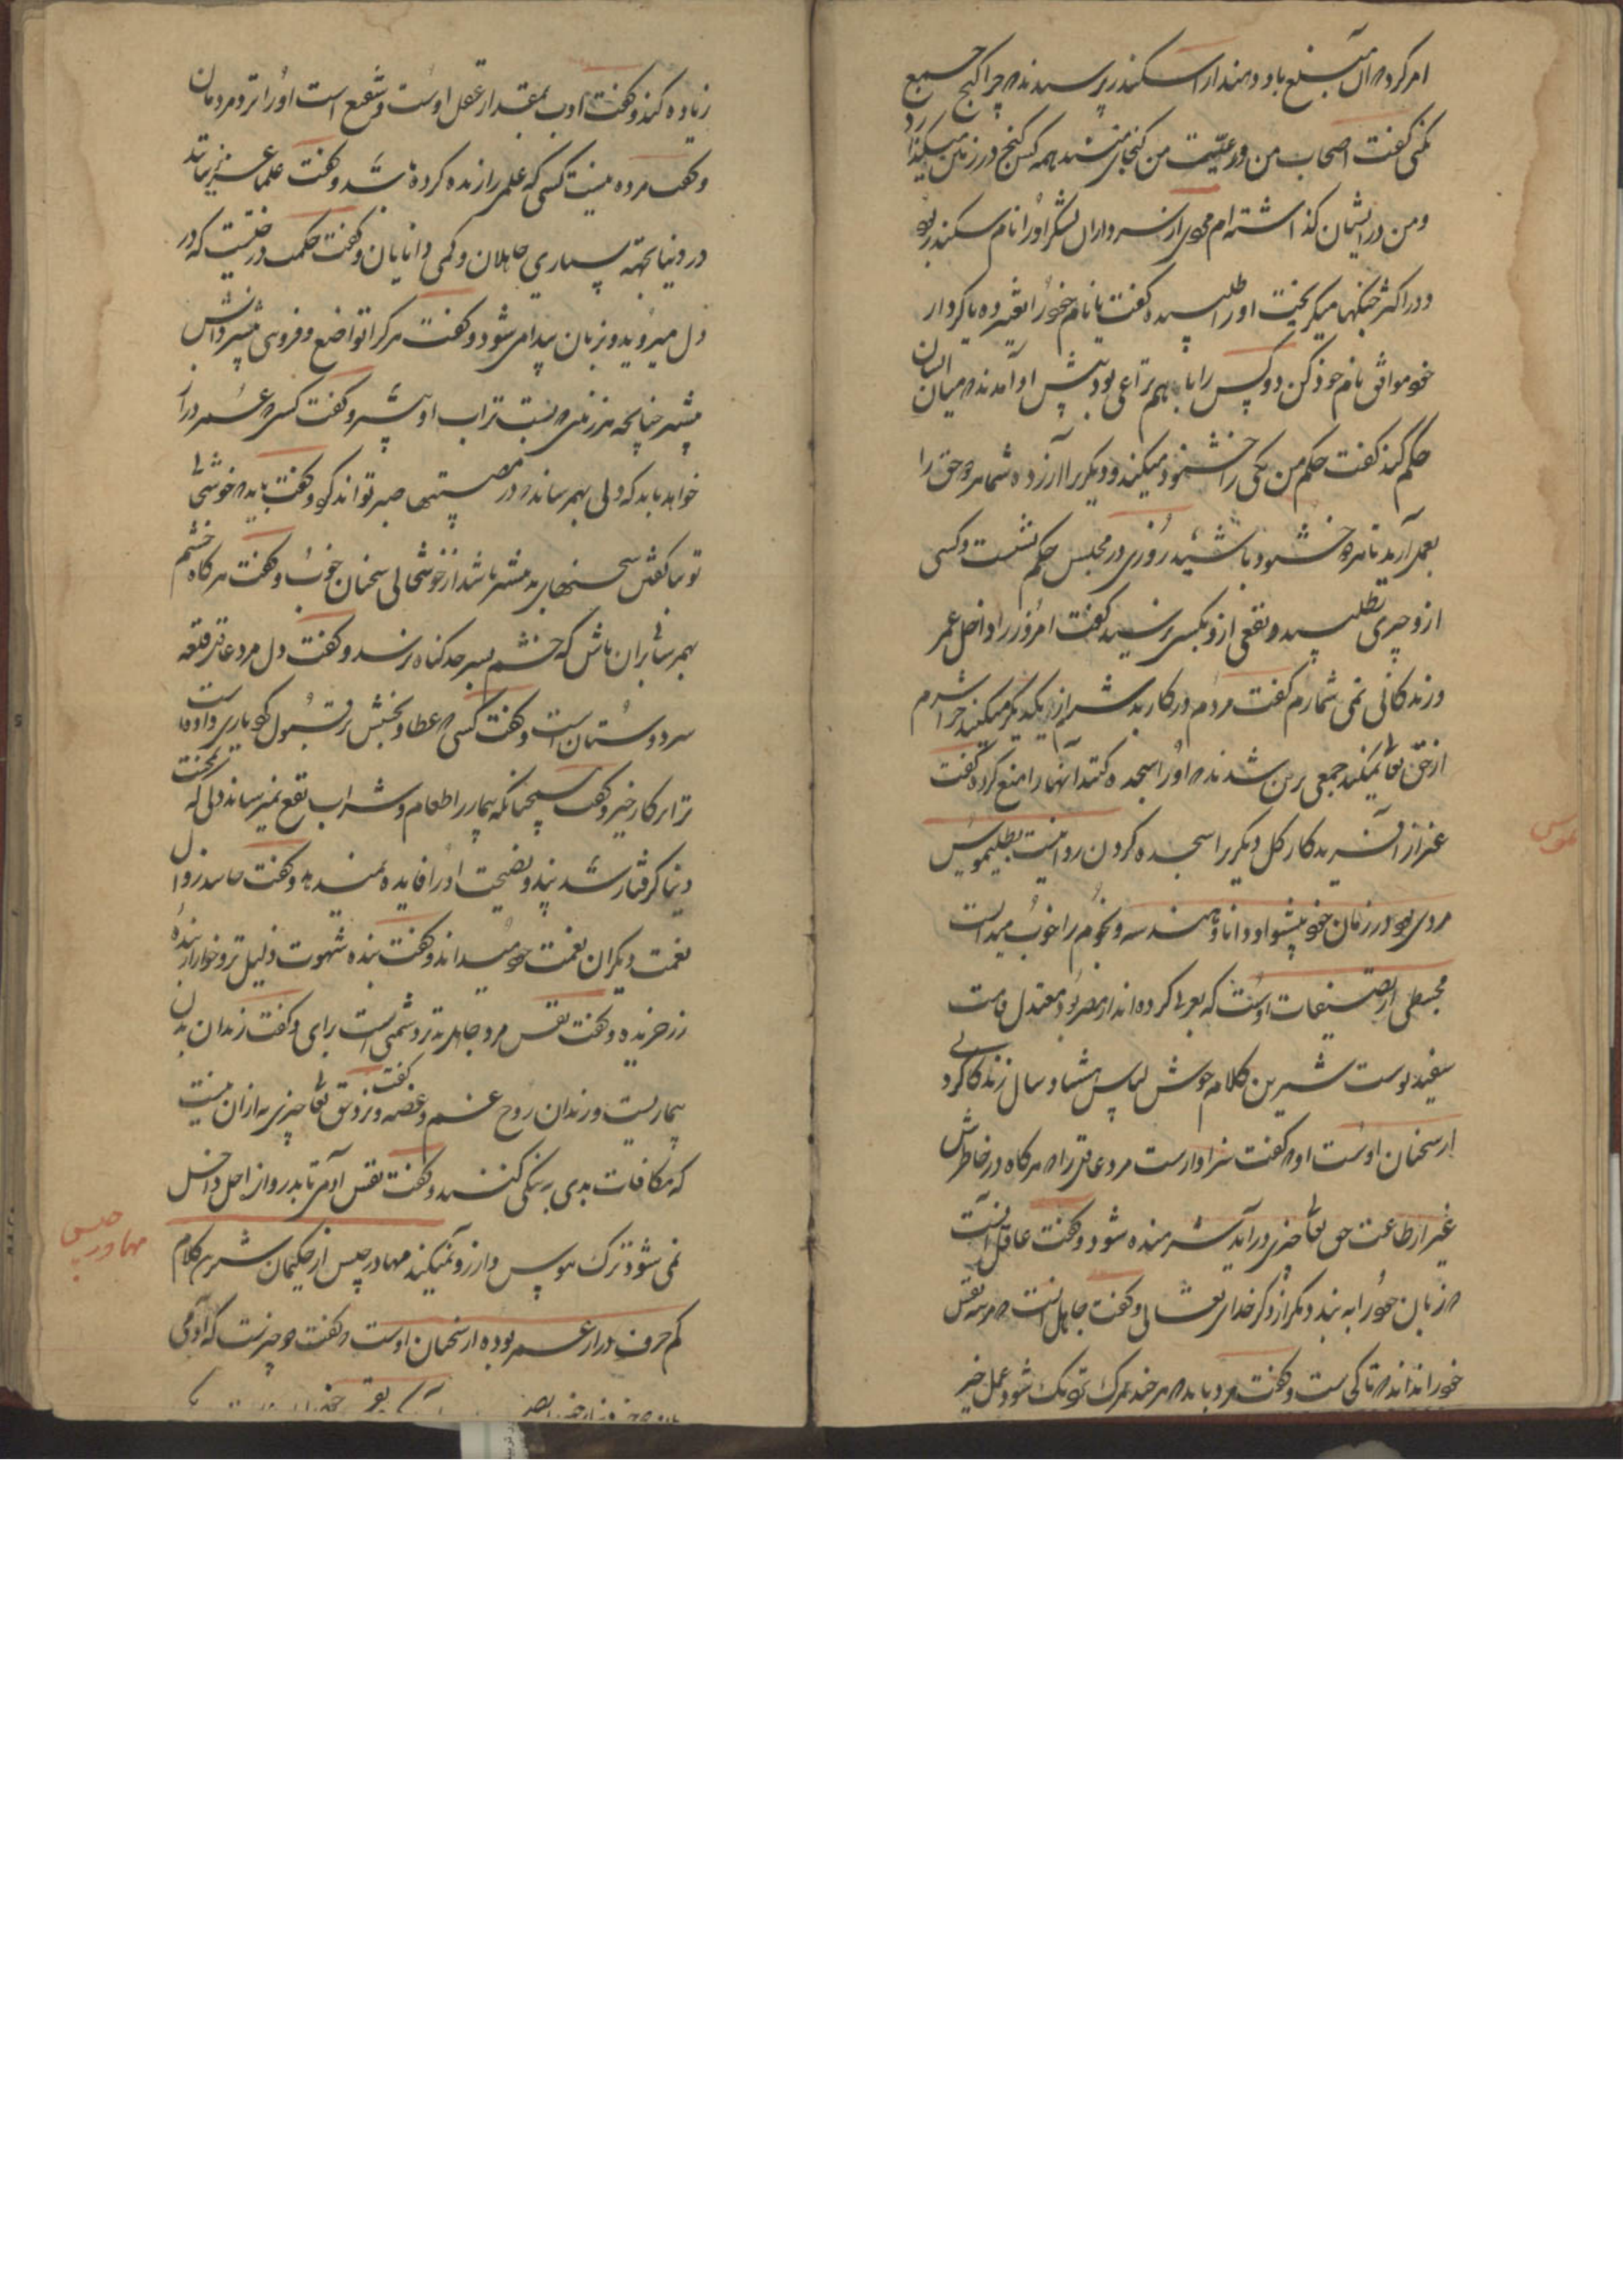 امر کرد که آن مبلغ باو دهند از اسکندر پرسیدند که چرا گنج جمع
نمی کنی گفت اصحاب من و رعیت من گنجهای منند همه کس گنج در زمین میگذارد
و من در ایشان گذاشته ام مردی از سرداران لشکر او را نام سکندر بود
و در اکثر جنگها میگریخت او را طلبیده گفت یا نام خود را تغییر ده یا کردار
خود موافق نام خود کن دو کس را با هم نزاعی بود پیش او آمدند که میان ایشان
حکم کند گفت حکم من یکی را خشنود میکند و دیگری را آزرده شما هر دو حق را
بعمل آرید تا هر دو خشنود باشید روزی در مجلس حکم نشست و کسی
ازو چیزی نطلبید و نفعی ازو بکسی نرسید گفت امروز را داخل عمر
و زندگانی نمی شمارم گفت مردم در کار بد شرم از یکدیگر میکنند چرا شرم
از حق تعالی نمیکنند جمعی برین شدند که او را سجده کنند آنها را منع کرد و گفت
غیر از آفریدگار کل دیگری را سجده کردن روا نیست بطلیموس
مردی بود در زمان خود پیشوا و دانا و هندسه و نجوم را خوب میدانست
مجسطی از تصنیفات اوست که بعربی کرده اند از مصر بود معتدل قامت
سفید پوست شیرین کلام خوش لباس هشتاد سال زندگانی کرد
از سخنان اوست که گفت سزاوارست مرد عاقل را که هر گاه در خاطرش
غیر از طاعت حق تعالی چیزی درآید شرمنده شود و گفت عاقل آنست
که زبان خود را به بندد مگر از ذکر خدای تعالی و گفت جاهل آنست که مرتبه نفس
خود را نداند که تا کی ست و گفت مرد باید که هر چند مرگ نزدیک شود عمل خیر
زیاده کند و گفت ادب بمقدار عقل اوست و شفیع است او را نزد مردمان
و گفت مرده نیست کسی که علم را زنده کرده باشد و گفت علما غریبانند
در دنیا بجهة بسیاری جاهلان و کمی دانایان و گفت حکمت درختیست که در
دل میروید و بزبان پیدا می شود و گفت هر کرا تواضع و فروتنی بیشتر دانش
بیشتر چنانچه هر زمینی که پست تر آب او بیشتر و گفت کسی که عمر دراز
خواهد باید که دلی بهم رساند که در مصیبتها صبر تواند کرد و گفت باید که خوشحالی
تو بناگفتن سخنهای بد بیشتر باشد از خوشحالی سخنان خوب و گفت هر گاه خشم
بهم رسانی بران باش که خشم بسرحد گناه نرسد و گفت دل مرد عاقل قلعه
سر دوستان است و گفت کسی که عطا و بخشش تر قبول کرد یاری داده است
ترا بر کار خیر و گفت همچنانکه بیمار را طعام و شراب نفع نمیرساند دلی که بمحبت
دنیا گرفتار شد پند و نصیحت او را فایده نمیدهد و گفت حاسد زوال
نعمت دیگران نعمت خود میداند و گفت بنده شهوت ذلیل تر و خوارتر از بنده
زر خریده و گفت نفس مرد جاهل بدتر دشمنی است برای او گفت زندان بدن
بیماریست و زندان روح غم و غصه و گفت نزد حق تعالی چیزی به ازان نیست
که مکافات بدی به نیکی کنند و گفت نفس آدمی تا بدروازه اجل داخل
نمی شود ترک هوس و آرزو نمیکند مهادرجیس از حکیمان شیرین کلام
کم حرف دراز عمر بوده از سخنان اوست که گفت دو چیزست که آدمی
مهادرجیس